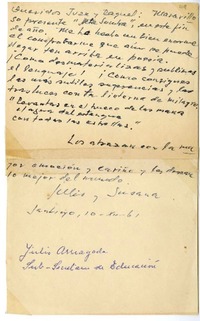 Queridos Juan y Raquel: Maravillo
so presente "Alta Sombra", en este fin
de año. Me ha hecho un bien enorme
al comprobarme que aún se puede
llegar tan arriba en poesía.
¡Cómo desmaterializas y sublimas
el lenguaje! ¡Cómo consignas
las más sutiles sugerencias y las
traduces con tu linterna de milagros
"Levantas en el hueco de las manos
el agua del estanque
con todas las estrellas".
Los abrazan con la ma
yor emoción y cariño y les desean
lo mejor del mundo.
Julio y Susana
Santiago, 10-XII-61
Julio Arriagada
Sub-Secretario de Educación